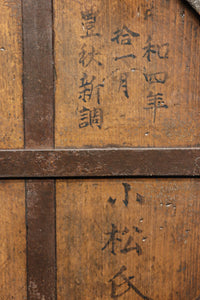 昭和四年
拾一月
豊秋新調
小松氏